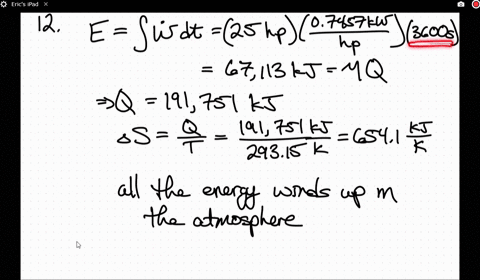 Eric's iPad
12. E = ∫ẇdt = (25 hp)(0.7457kW/hp)(3600s)
= 67,113 kJ = ηQ
⇒Q = 191,751 kJ
ΔS = Q/T = 191,751 kJ/293.15 K = 654.1 kJ/K
all the energy winds up in
the atmosphere